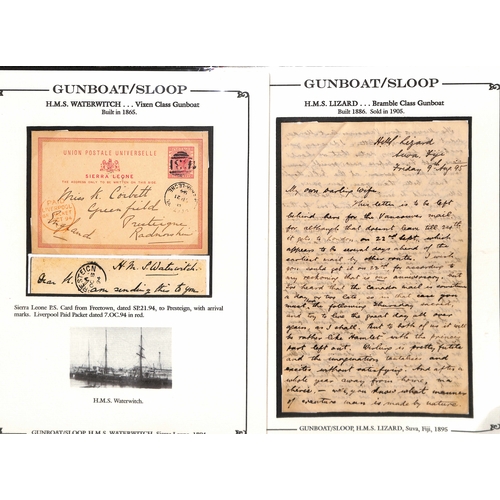 GUNBOAT/SLOOP
H.M.S. WATERWITCH . . . Vixen Class Gunboat
Built in 1865.
UNION POSTALE UNIVERSELLE
SIERRA LEONE
Miss K. Corbett
Greenfield
Presteigne
Radnorshire
England
PAID
LIVERPOOL
PACKET
H.M.S. Waterwitch
Dear K. I am sending this to you
Sierra Leone P.S. Card from Freetown, dated SP.21.94, to Presteign, with arrival
marks. Liverpool Paid Packet dated 7.OC.94 in red.
H.M.S. Waterwitch.
GUNBOAT/SLOOP, H.M.S. WATERWITCH, Sierra Leone, 1894
GUNBOAT/SLOOP
H.M.S. LIZARD . . . Bramble Class Gunboat
Built 1886. Sold in 1905.
HMS Lizard
Suva Fiji
Friday 9th Aug 95
My own Darling Wife
This letter is to be left
behind here for the Vancouver mail
for although that doesn't leave till
it gets to London on 22nd Sept, which
appears to be several days ahead of the
earliest mail by other routes. I wish
you could get it on 22nd for according to
my reckoning that is our anniversary, but
too heard that the Canadian mail is sometimes
a day or two late so in that case you
must the following Thursday
try to live the great day all over
again, as I shall. But to both of us it will
be rather like Hamlet with the
part left out. Writing is pretty futile
and the imagination tantalises and
excites without satisfying. And after a
whole year away from home, ma
cherie, you know what manner
of creature man is made by nature
GUNBOAT/SLOOP, H.M.S. LIZARD, Suva, Fiji, 1895